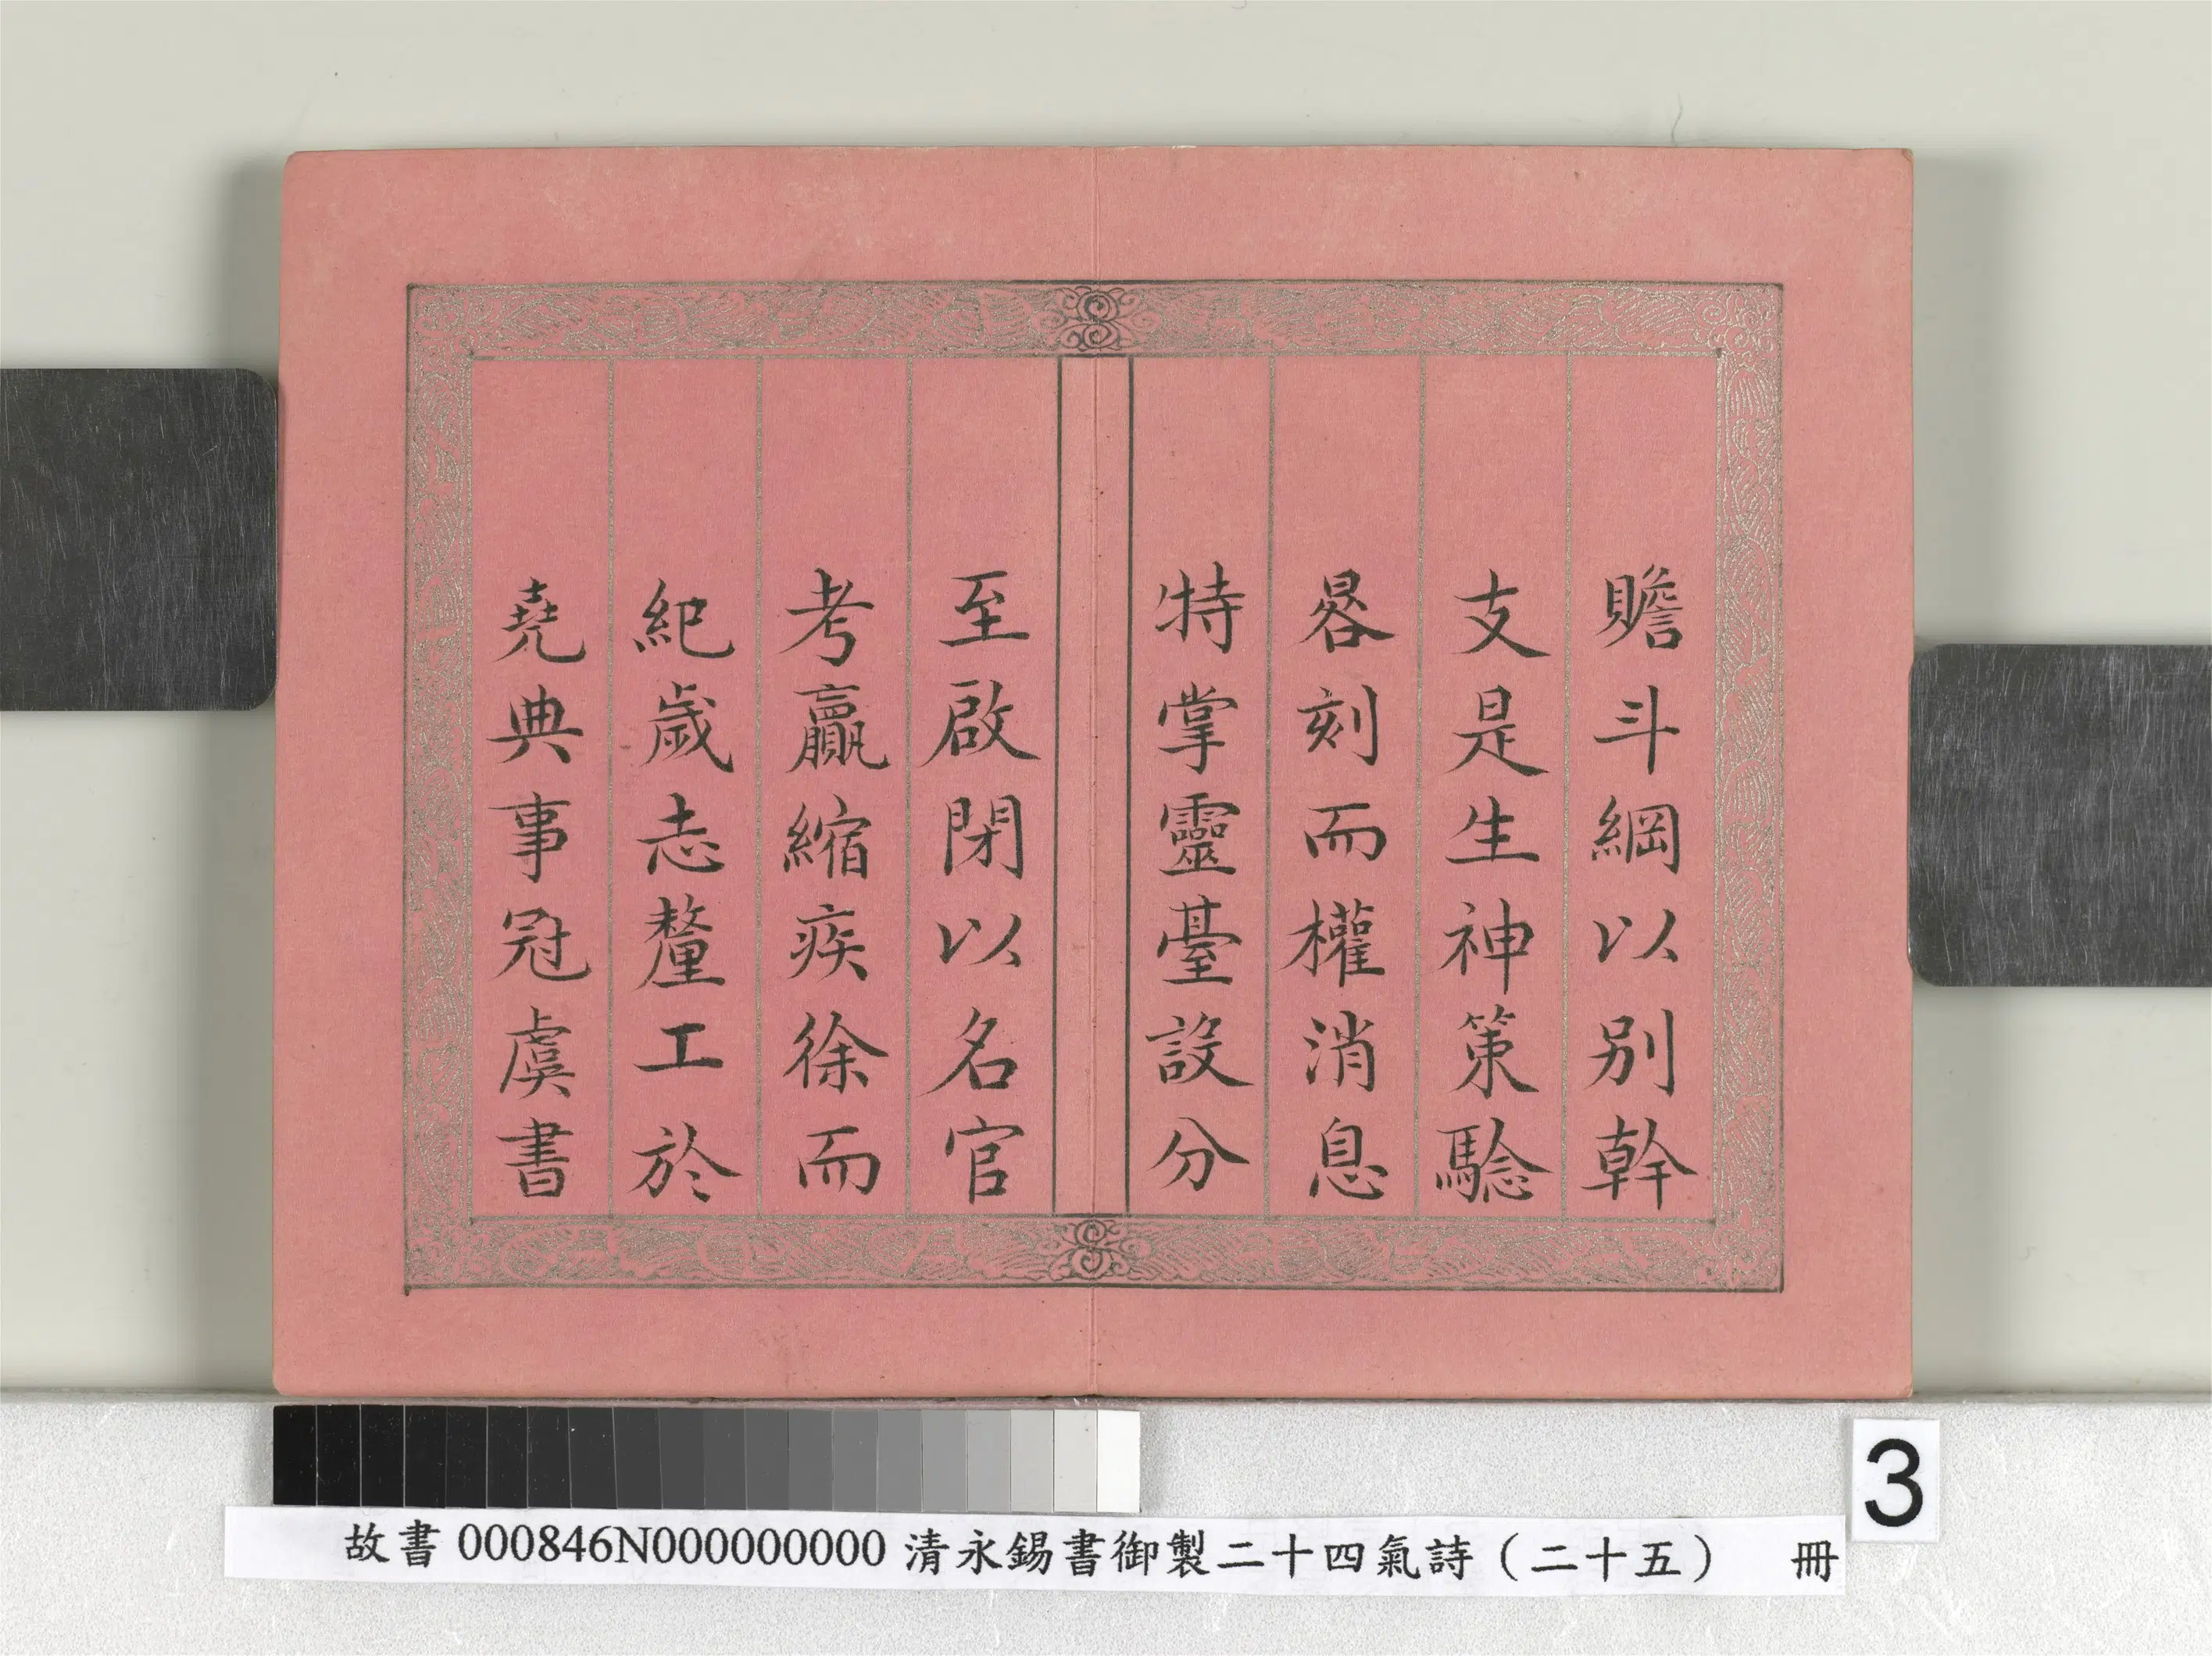 贍斗綱以别幹
支是生神策騐
晷刻而權消息
特掌靈臺設分
至啟閉以名官
考贏縮疾徐而
紀歲志釐工於
堯典事冠虞書
3
故書 000846N000000000 清永錫書御製二十四氣詩（二十五） 冊